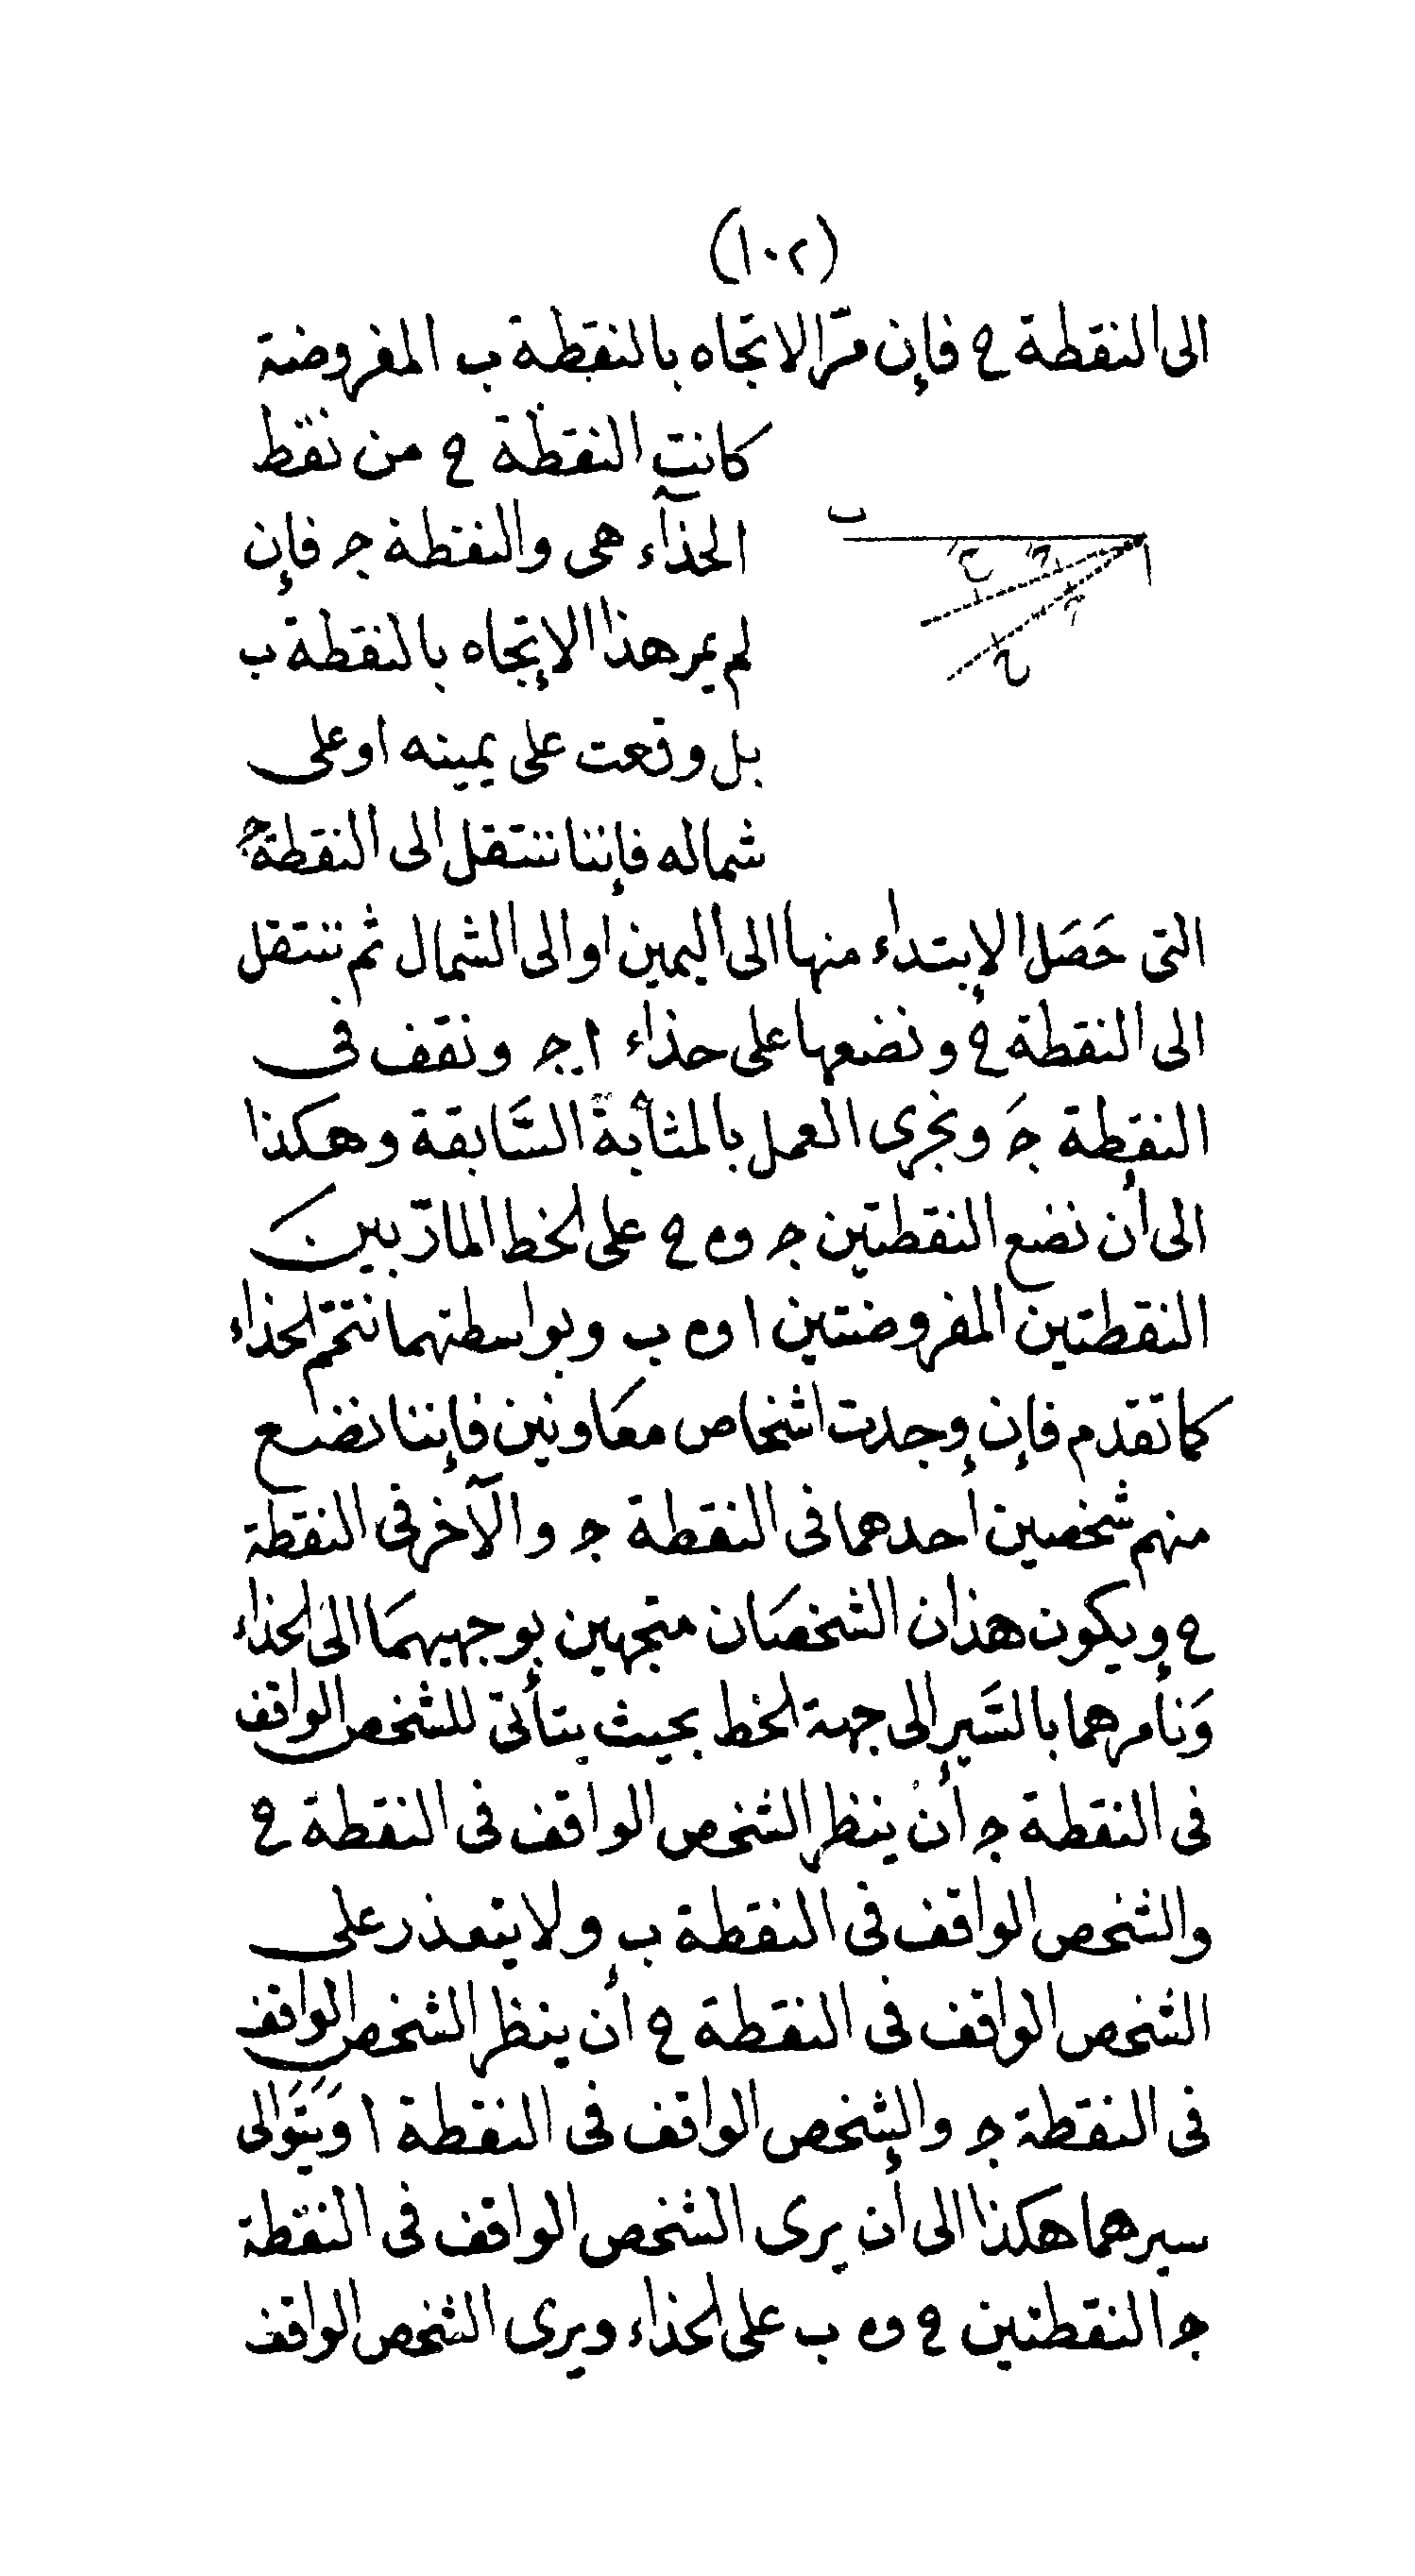 (١٠٢)
الى النقطة ح فإن مرّ الاتجاه بالنقطة ب المفروضة
كانت النقطة ح من نقط
الحذآء هى والنقطة جـ فإن
ب
ا
لم يمر هذا الإتجاه بالنقطة ب
بل وقعت على يمينه او على
شماله فإننا ننتقل الى النقطة جـ
التى حَصَل الإبتداء منها الى اليمين او الى الشمال ثم ننتقل
الى النقطة حَ ونضعها على حذاء ا جـ ونقف فى
النقطة جـَ ونجرى العمل بالمثابة السَّابقة وهكذا
الى أن نضع النقطتين جـ وه ح على الخط المارّ بين
النقطتين المفروضتين ا وه ب وبواسطتهما نتمّم الحذاء
كما تقدم فإن وجدت اشخاص معَاونين فإننا نضع
منهم شخصين احدهما فى النقطة جـ والآخر فى النقطة
ح ويكون هذان الشخصَان متجهين بوجهيهمَا الى الحذاء
وَنأمرهما بالسَّير الى جهة الخط بحيث يتأتى للشخص الواقف
فى النقطة جـ أن ينظر الشخص الواقف فى النقطة ح
والشخص الواقف فى النقطة ب ولا يتعذر على
الشخص الواقف فى النقطة ح أن ينظر الشخص الواقف
فى النقطة جـ والشخص الواقف فى النقطة ا وَيَتَوَالى
سيرهما هكذا الى أن يرى الشخص الواقف فى النقطة
جـ النقطتين ح وه ب على الحذاء ويرى الشخص الواقف